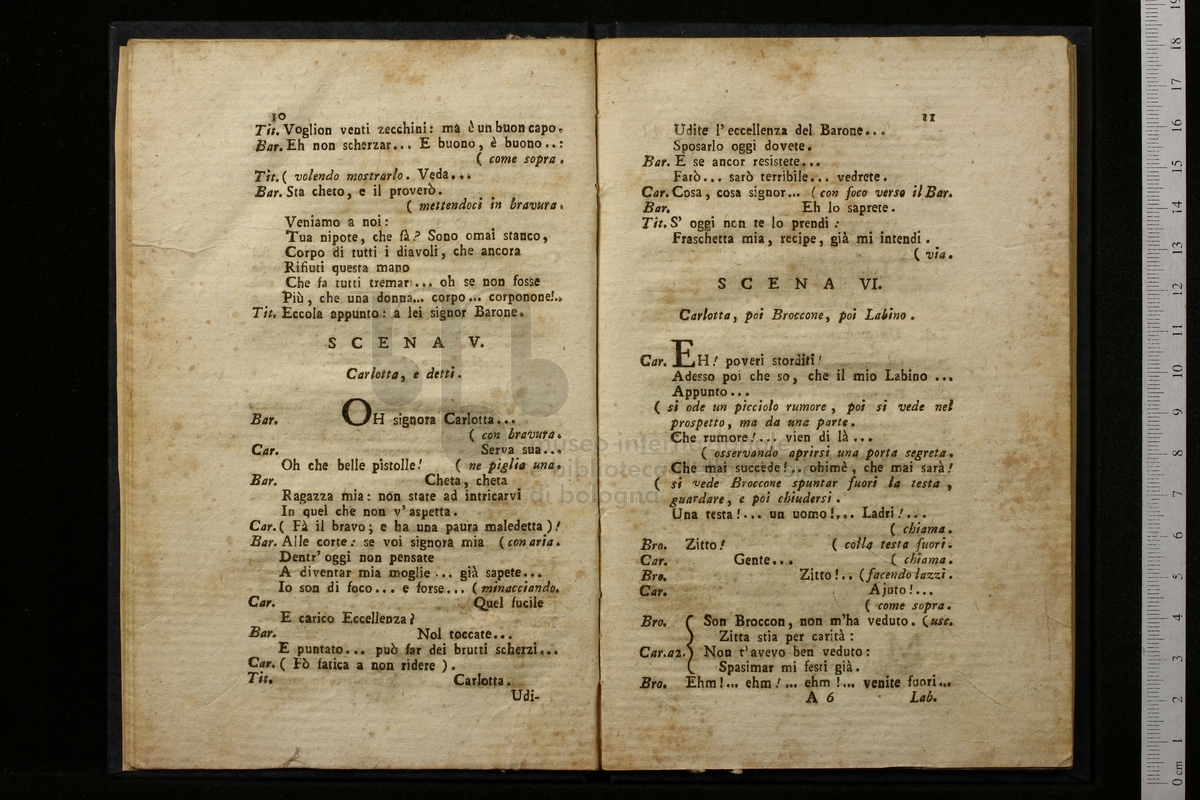 10
Tit. Voglion venti zecchini: ma è un buon capo.
Bar. Eh non scherzar... E buono, è buono..:
( come sopra.
Tit. ( volendo mostrarlo. Veda...
Bar. Sta cheto, e il proverò.
( mettendoci in bravura.
Veniamo a noi:
Tua nipote, che fà? Sono omai stanco,
Corpo di tutti i diavoli, che ancora
Rifiuti questa mano
Che fa tutti tremar... oh se non fosse
Più, che una donna... corpo... corponone!..
Tit. Eccola appunto: a lei signor Barone.
SCENA V.
Carlotta, e detti.
Bar. OH signora Carlotta...
( con bravura.
Car. Serva sua...
Oh che belle pistolle! ( ne piglia una.
Bar. Cheta, cheta
Ragazza mia: non state ad intricarvi
In quel che non v'aspetta.
Car. ( Fà il bravo; e ha una paura maledetta )!
Bar. Alle corte: se voi signora mia ( con aria.
Dentr'oggi non pensate
A diventar mia moglie... già sapete...
Io son di foco... e forse... ( minacciando.
Car. Quel fucile
E carico Eccellenza?
Bar. Nol toccate...
E puntato... può far dei brutti scherzi...
Car. ( Fò fatica a non ridere ).
Tit. Carlotta.
Udi-
11
Udite l'eccellenza del Barone...
Sposarlo oggi dovete.
Bar. E se ancor resistete...
Farò... sarò terribile... vedrete.
Car. Cosa, cosa signor... ( con foco verso il Bar.
Bar. Eh lo saprete.
Tit. S'oggi non te lo prendi:
Fraschetta mia, recipe, già mi intendi.
( via.
SCENA VI.
Carlotta, poi Broccone, poi Labino.
Car. EH! poveri storditi!
Adesso poi che so, che il mio Labino...
Appunto...
( si ode un picciolo rumore, poi si vede nel
prospetto, ma da una parte.
Che rumore!... vien di là...
( osservando aprirsi una porta segreta.
Che mai succede!.. ohimè, che mai sarà!
( si vede Broccone spuntar fuori la testa,
guardare, e poi chiudersi.
Una testa!... un uomo!... Ladri!...
( chiama.
Bro. Zitto! ( colla testa fuori.
Car. Gente... ( chiama.
Bro. Zitto!.. ( facendo lazzi.
Car. Ajuto!...
( come sopra.
Bro. Son Broccon, non m'ha veduto. ( usc.
Zitta stia per carità:
Car. a2. Non t'avevo ben veduto:
Spasimar mi festi già.
Bro. Ehm!... ehm!... ehm!... venite fuori...
A 6 Lab.
museo internazionale
biblioteca
di bologna
0 cm 1 2 3 4 5 6 7 8 9 10 11 12 13 14 15 16 17 18 19